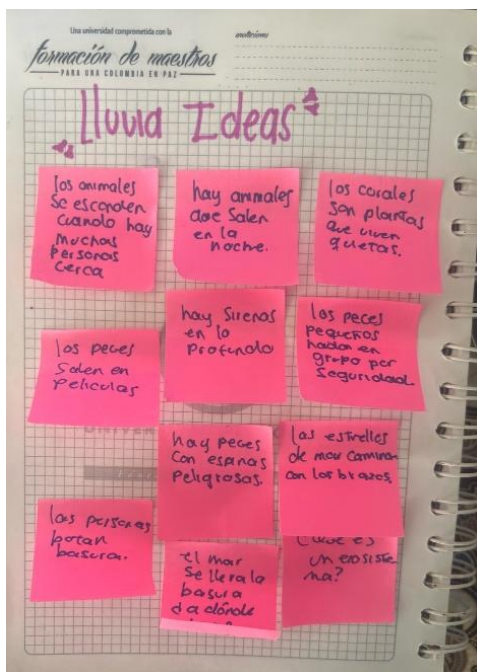 Una universidad comprometida con la
formación de maestros
PARA UNA COLOMBIA EN PAZ
Lluvia Ideas
los animales
se esconden
cuando hay
muchas
personas
cerca
hay animales
que salen
en la
noche.
los corales
son plantas
que viven
quietas.
los peces
salen en
peliculas
hay sirenas
en lo
profundo
los peces
pequeños
nadan en
grupo por
seguridad
hay peces
con espinas
peligrosas.
las estrellas
de mar caminan
con los brazos.
las personas
botan
basura.
el mar
se lleva la
basura
dónde
un
ma?